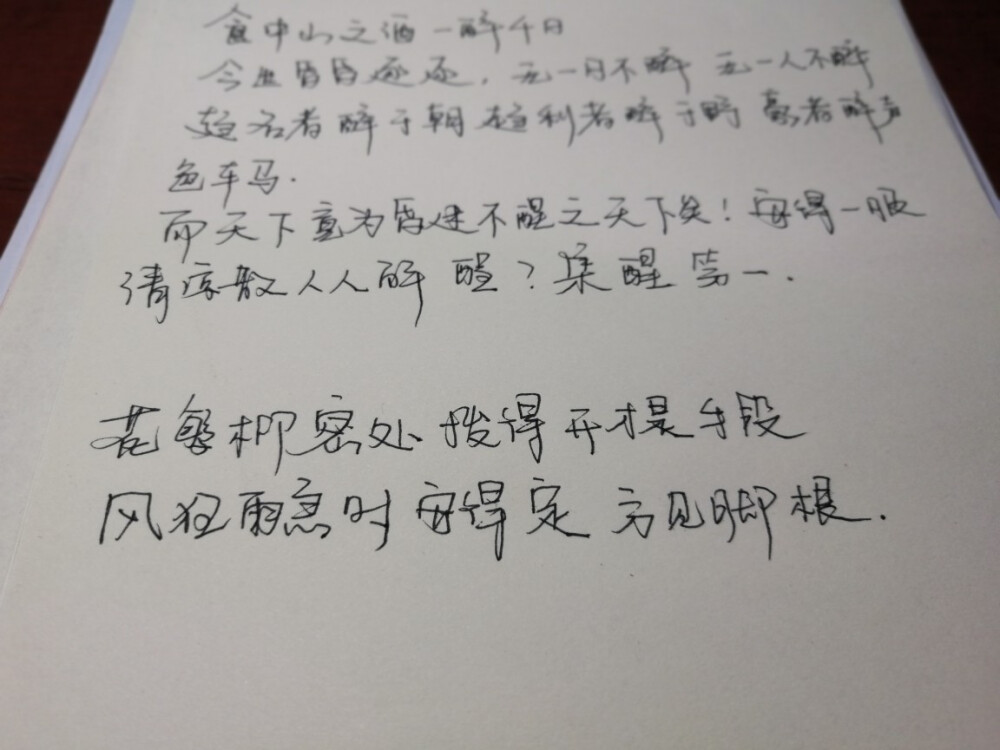 食中山之酒一醉千日
今世昏昏逐逐，无一日不醉 无一人不醉
趋名者醉于朝 趋利者醉于野 豪者醉声
色车马.
而天下竟为昏迷不醒之天下矣！安得一服
清凉散人人解醒？集醒第一.
花繁柳密处拨得开才是手段
风狂雨急时安得定方见脚根.